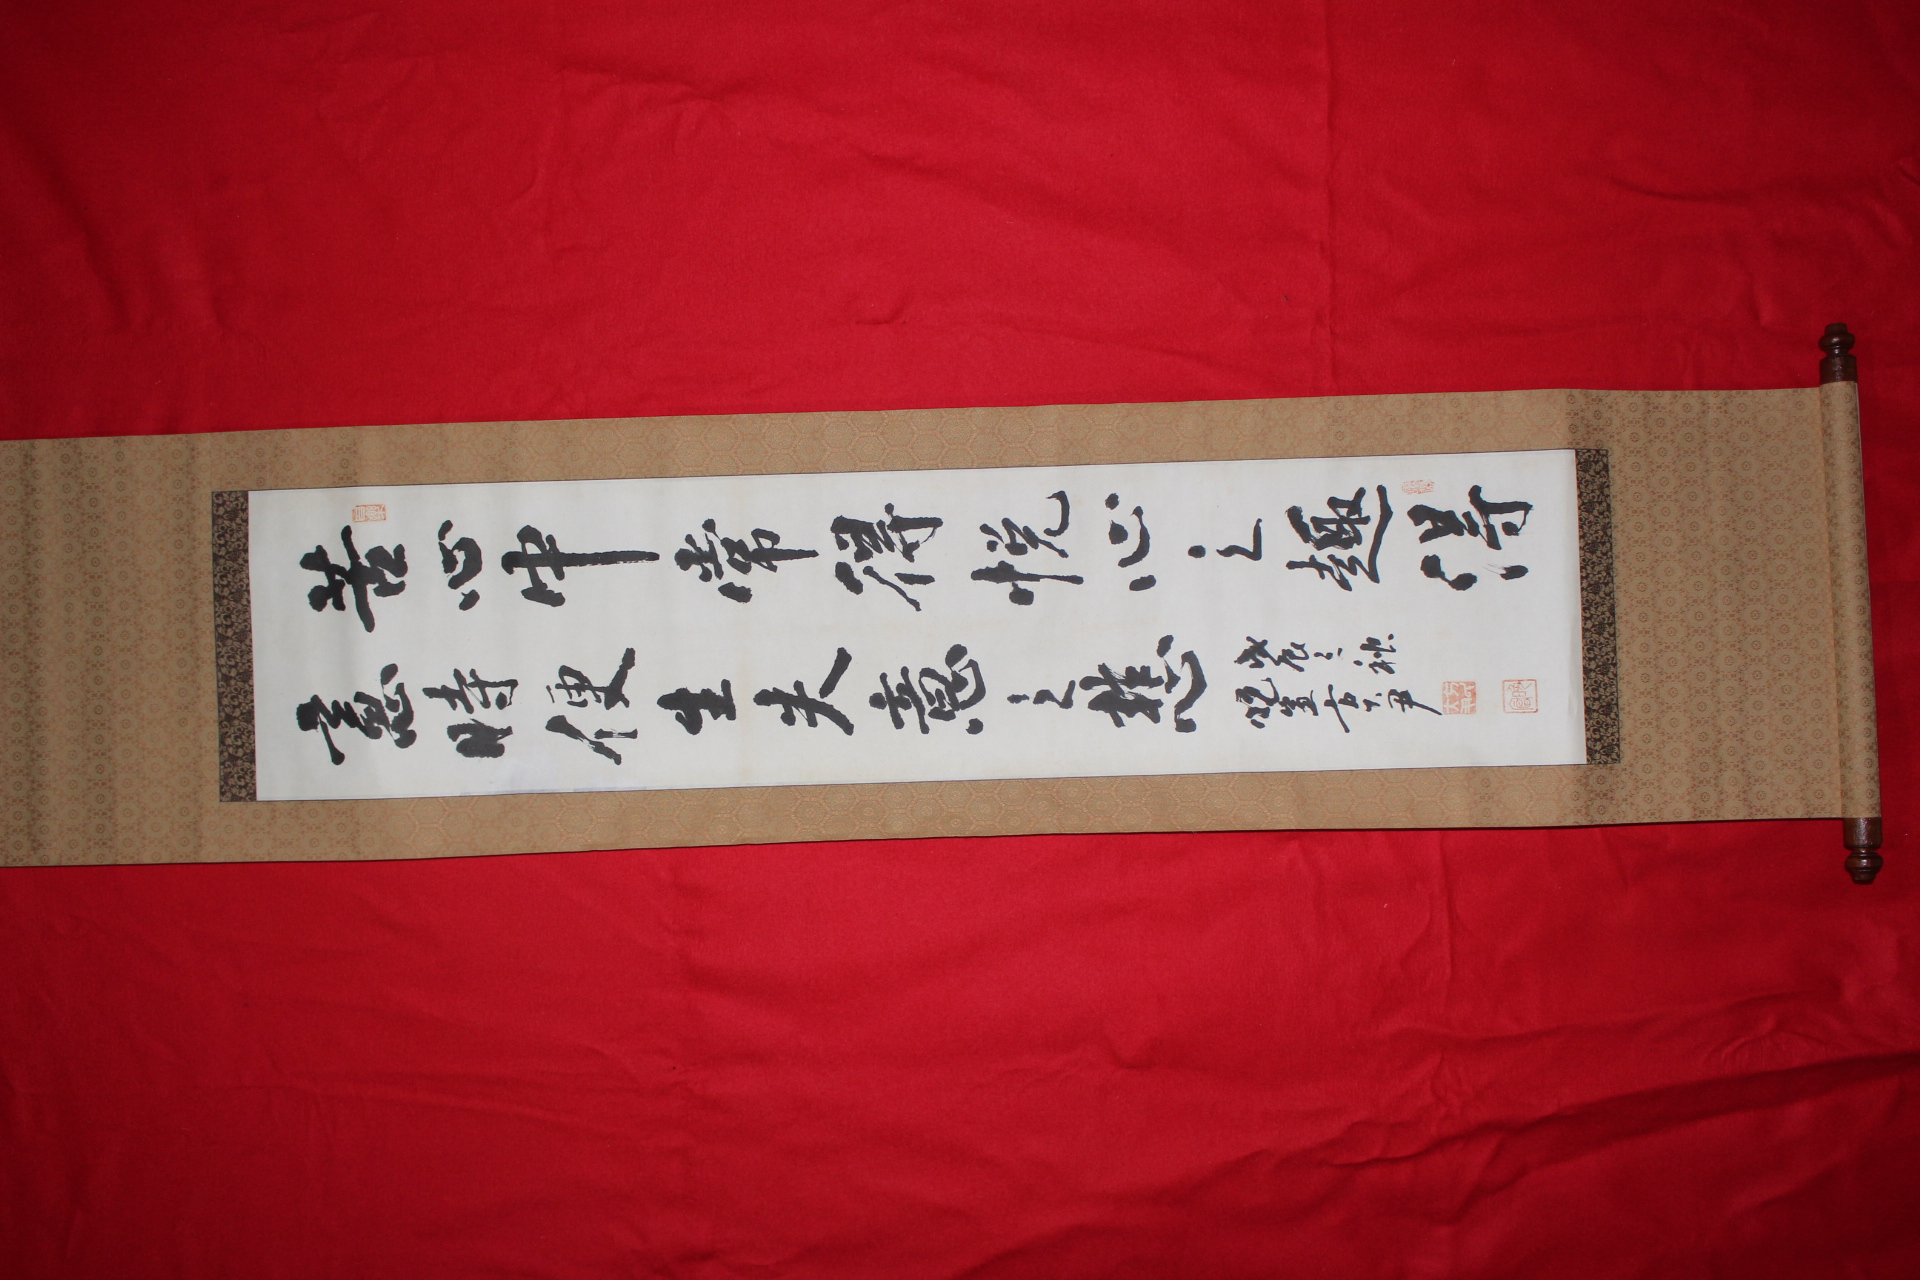 苦心中常得悅心之趣得
意時便生失意之悲
戊辰之秋
方大尹
方氏大尹